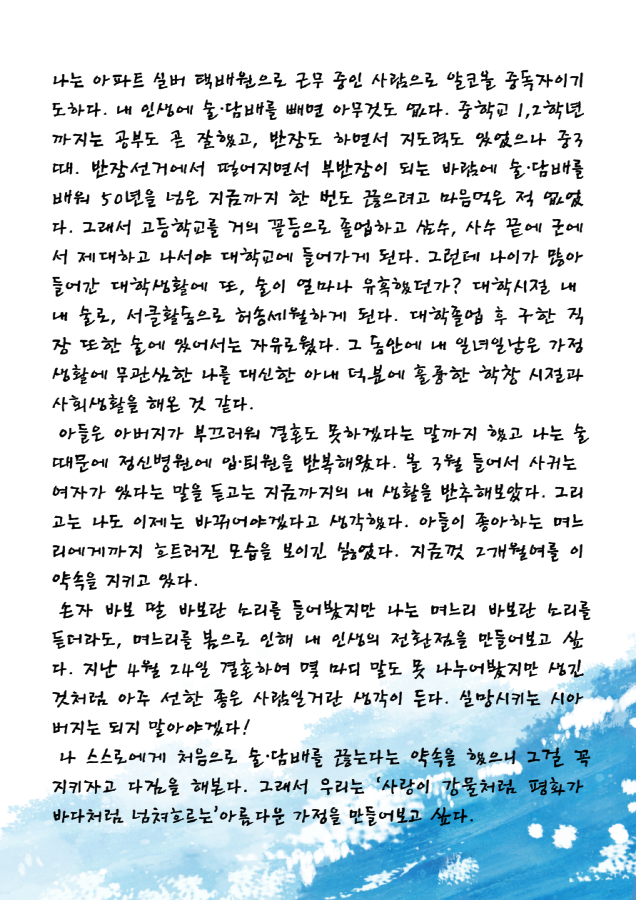 나는 아파트 실버 택배원으로 근무 중인 사람으로 알코올 중독자이기
도하다. 내 인생에 술·담배를 빼면 아무것도 없다. 중학교 1,2학년
까지는 공부도 곧 잘했고, 반장도 하면서 지도력도 있었으나 중3
때. 반장선거에서 떨어지면서 부반장이 되는 바람에 술·담배를
배워 50년을 넘은 지금까지 한 번도 끊으려고 마음먹은 적 없었
다. 그래서 고등학교를 거의 꼴등으로 졸업하고 삼수, 사수 끝에 군에
서 제대하고 나서야 대학교에 들어가게 된다. 그런데 나이가 많아
들어간 대학생활에 또, 술이 얼마나 유혹했던가? 대학시절 내
내 술로, 서클활동으로 허송세월하게 된다. 대학졸업 후 구한 직
장 또한 술에 있어서는 자유로웠다. 그 동안에 내 일녀일남은 가정
생활에 무관심한 나를 대신한 아내 덕분에 훌륭한 학창 시절과
사회생활을 해온 것 같다.
아들은 아버지가 부끄러워 결혼도 못하겠다는 말까지 했고 나는 술
때문에 정신병원에 입·퇴원을 반복해왔다. 올 3월 들어서 사귀는
여자가 있다는 말을 듣고는 지금까지의 내 생활을 반추해보았다. 그리
고는 나도 이제는 바뀌어야겠다고 생각했다. 아들이 좋아하는 며느
리에게까지 흐트러진 모습을 보이긴 싫었다. 지금껏 2개월여를 이
약속을 지키고 있다.
손자 바보 딸 바보란 소리를 들어봤지만 나는 며느리 바보란 소리를
듣더라도, 며느리를 봄으로 인해 내 인생의 전환점을 만들어보고 싶
다. 지난 4월 24일 결혼하여 몇 마디 말도 못 나누어봤지만 생긴
것처럼 아주 선한 좋은 사람일거란 생각이 든다. 실망시키는 시아
버지는 되지 말아야겠다!
나 스스로에게 처음으로 술·담배를 끊는다는 약속을 했으니 그걸 꼭
지키자고 다짐을 해본다. 그래서 우리는 '사랑이 강물처럼 평화가
바다처럼 넘쳐흐르는'아름다운 가정을 만들어보고 싶다.